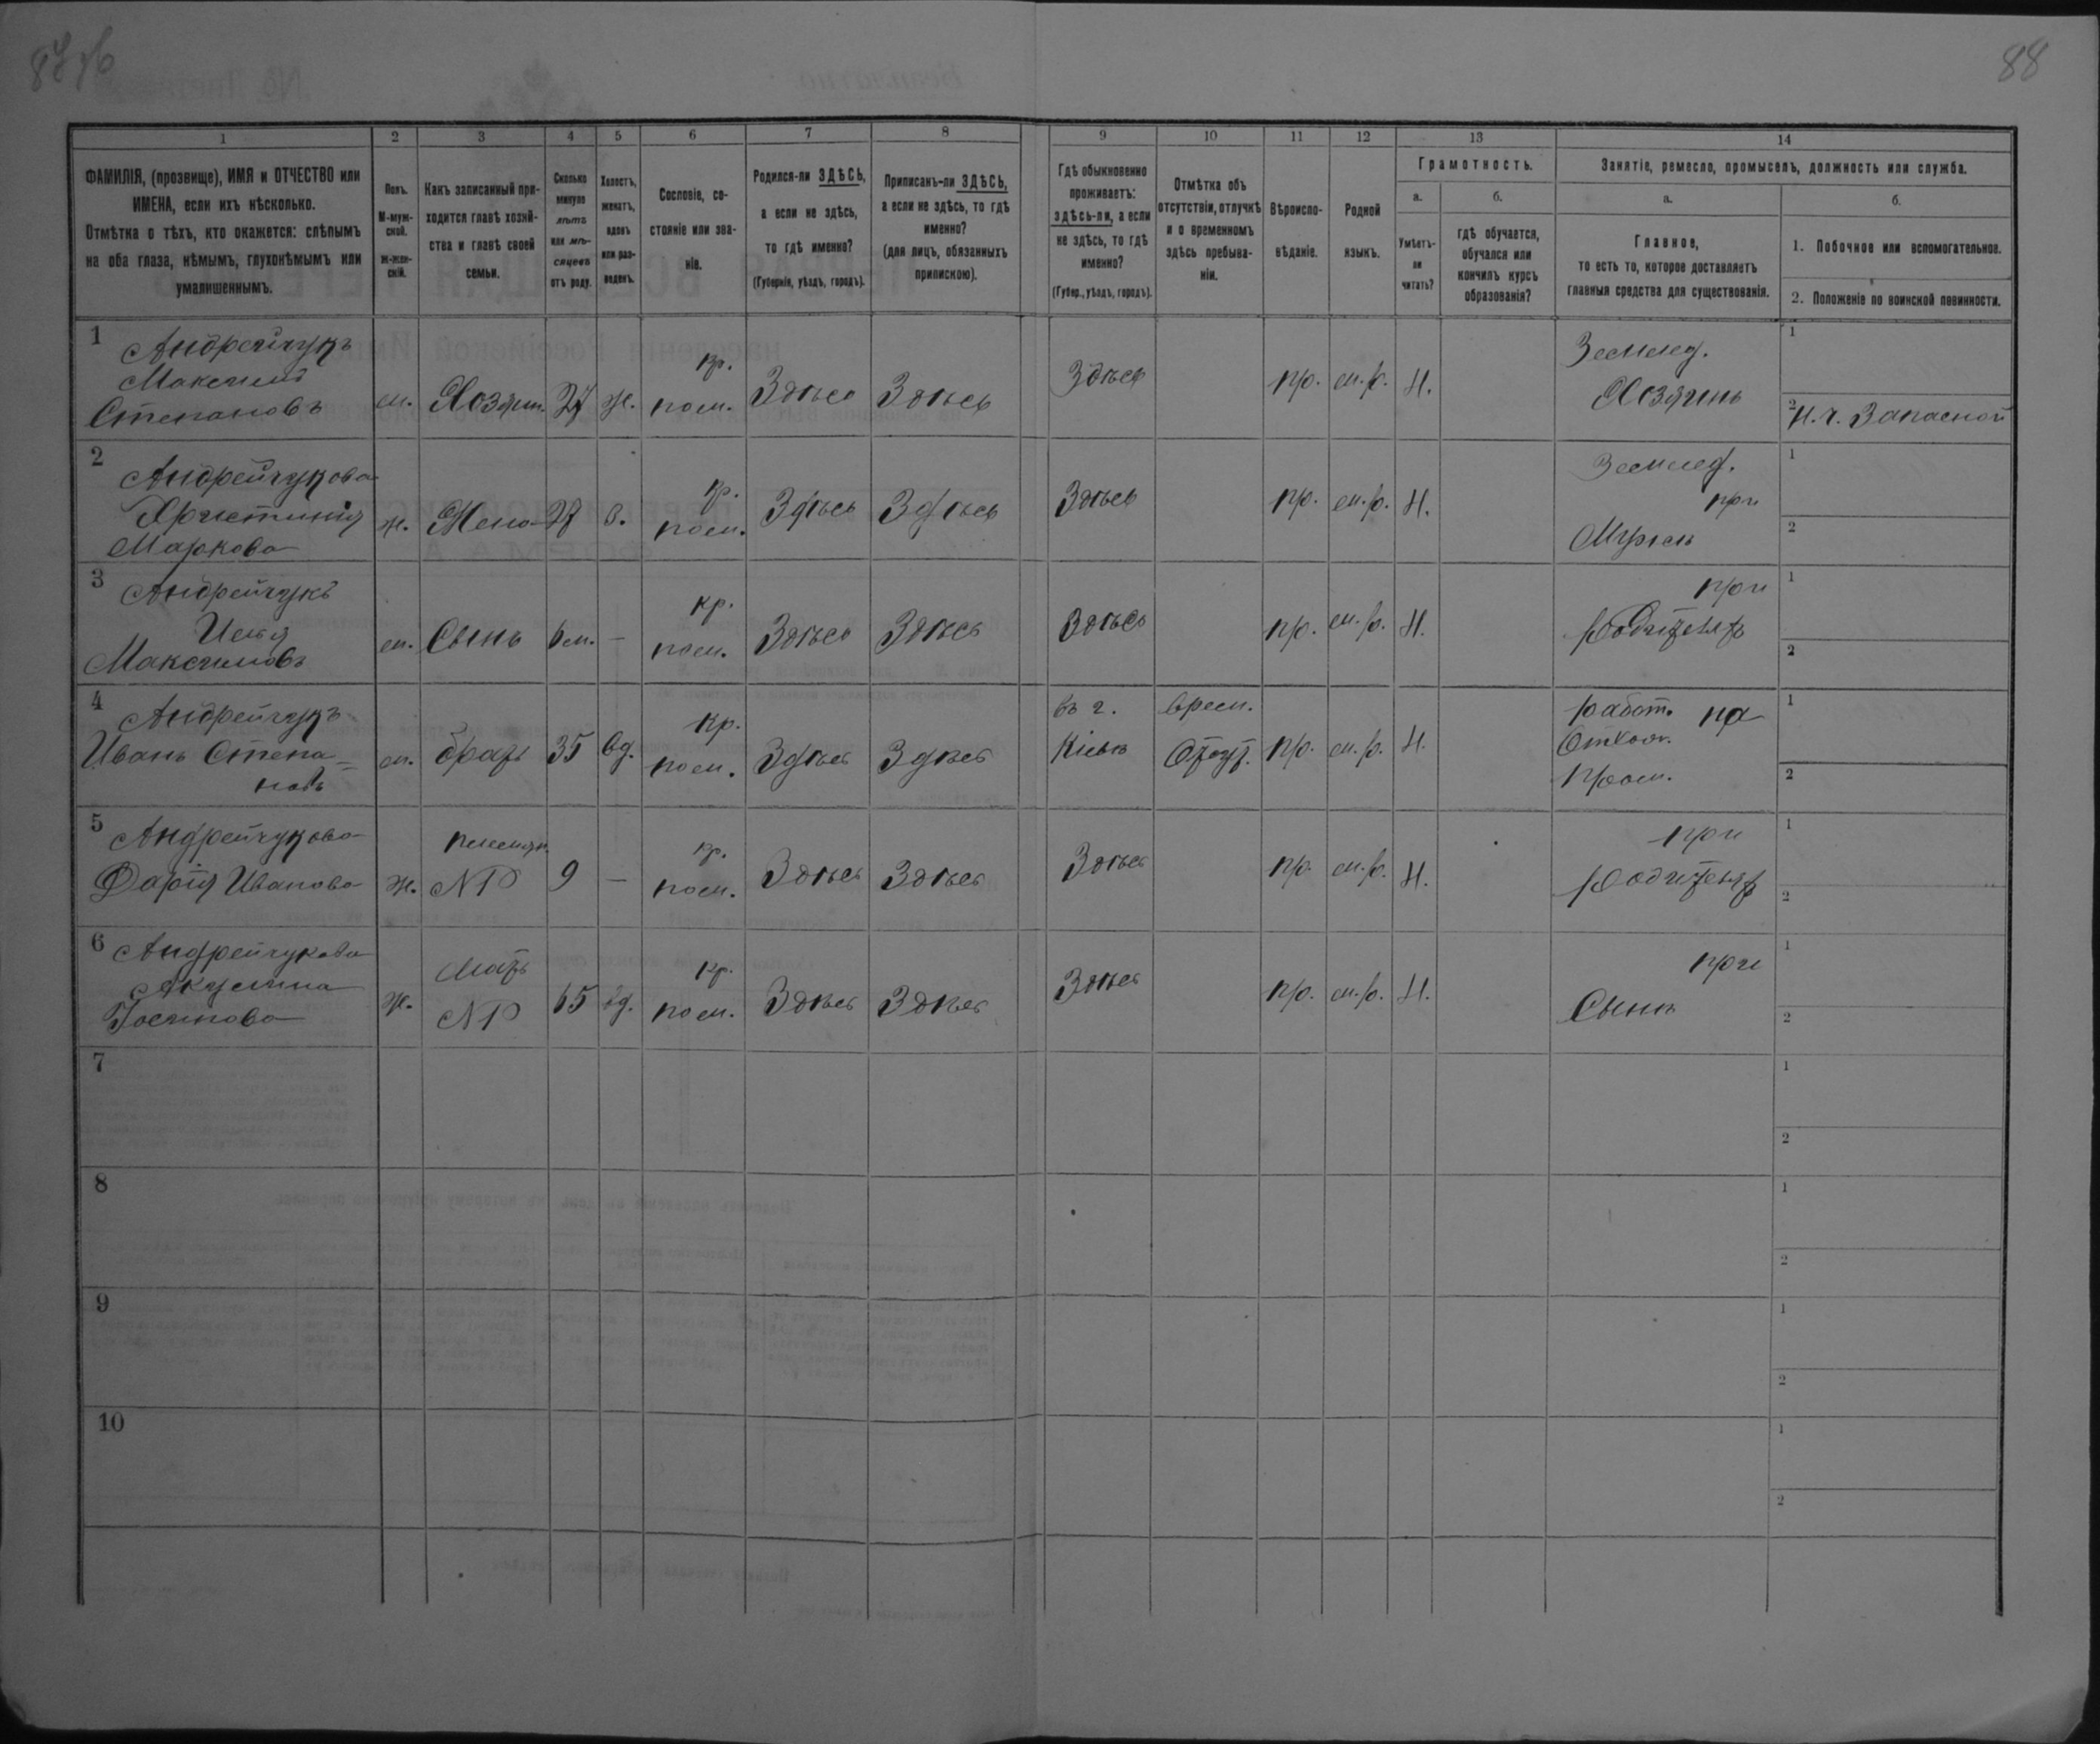 87 об
88
1 2 3 4 5 6 7 8 9 10 11 12 13 14
ФАМИЛІЯ, (прозвище), ИМЯ и ОТЧЕСТВО или
ИМЕНА, если ихъ нѣсколько.
Отмѣтка о тѣхъ, кто окажется: слѣпымъ
на оба глаза, нѣмымъ, глухонѣмымъ или
умалишеннымъ.
Полъ.
М-муж-
ской.
Ж-жен-
скій.
Какъ записанный при-
ходится главѣ хозяй-
ства и главѣ своей
семьи.
Сколько
минуло
лѣтъ
или мѣ-
сяцевъ
отъ роду.
Холостъ,
женатъ,
вдовъ
или раз-
веденъ.
Сословіе, со-
стояніе или зва-
ніе.
Родился-ли ЗДѢСЬ,
а если не здѣсь,
то гдѣ именно?
(Губернія, уѣздъ, городъ).
Приписанъ-ли ЗДѢСЬ,
а если не здѣсь, то гдѣ
именно?
(для лицъ, обязанныхъ
припискою).
Гдѣ обыкновенно
проживаетъ:
здѣсь-ли, а если
не здѣсь, то гдѣ
именно?
(Губер., уѣздъ, городъ).
Отмѣтка объ
отсутствіи, отлучкѣ
и о временномъ
здѣсь пребыва-
ніи.
Вѣроиспо-
вѣданіе.
Родной
языкъ.
Грамотность.
а.
Умѣетъ-
ли
читать?
б.
гдѣ обучается,
обучался или
кончилъ курсъ
образованія?
Занятіе, ремесло, промыселъ, должность или служба.
а.
Главное,
то есть то, которое доставляетъ
главныя средства для существованія.
б.
1. Побочное или вспомогательное.
2. Положеніе по воинской повинности.
1 Андрейчукъ
Максимъ
Степановъ
м. Хозяин. 27 ж. кр. пом. Здѣсь Здѣсь Здѣсь пр. м.р. Н. Землед. Хозяинъ
1
2 Н.ч. Запасной
2 Андрейчукова
Христинія
Маркова
ж. Жена 27 з. кр. пом. Здѣсь Здѣсь Здѣсь пр. м.р. Н. Землед. при Мужѣ
1
2
3 Андрейчукъ
Илья
Максимовъ
м. Сынъ 6м. — кр. пом. Здѣсь Здѣсь Здѣсь пр. м.р. Н. при Родителяхъ
1
2
4 Андрейчукъ
Иванъ Степа-
новъ
м. братъ 35 вд. кр. пом. Здѣсь Здѣсь въ г. Кіевѣ врем. Отсут. пр. м.р. Н. работ. на Отхож. Пром.
1
2
5 Андрейчукова
Дарія Иванова
ж. племян. NP 9 — кр. пом. Здѣсь Здѣсь Здѣсь пр. м.р. Н. при Родителяхъ
1
2
6 Андрейчукова
Акулина
ж. Мать NP 65 вд. кр. пом. Здѣсь Здѣсь Здѣсь пр. м.р. Н. при Сынѣ
1
2
7
1
2
8
1
2
9
1
2
10
1
2